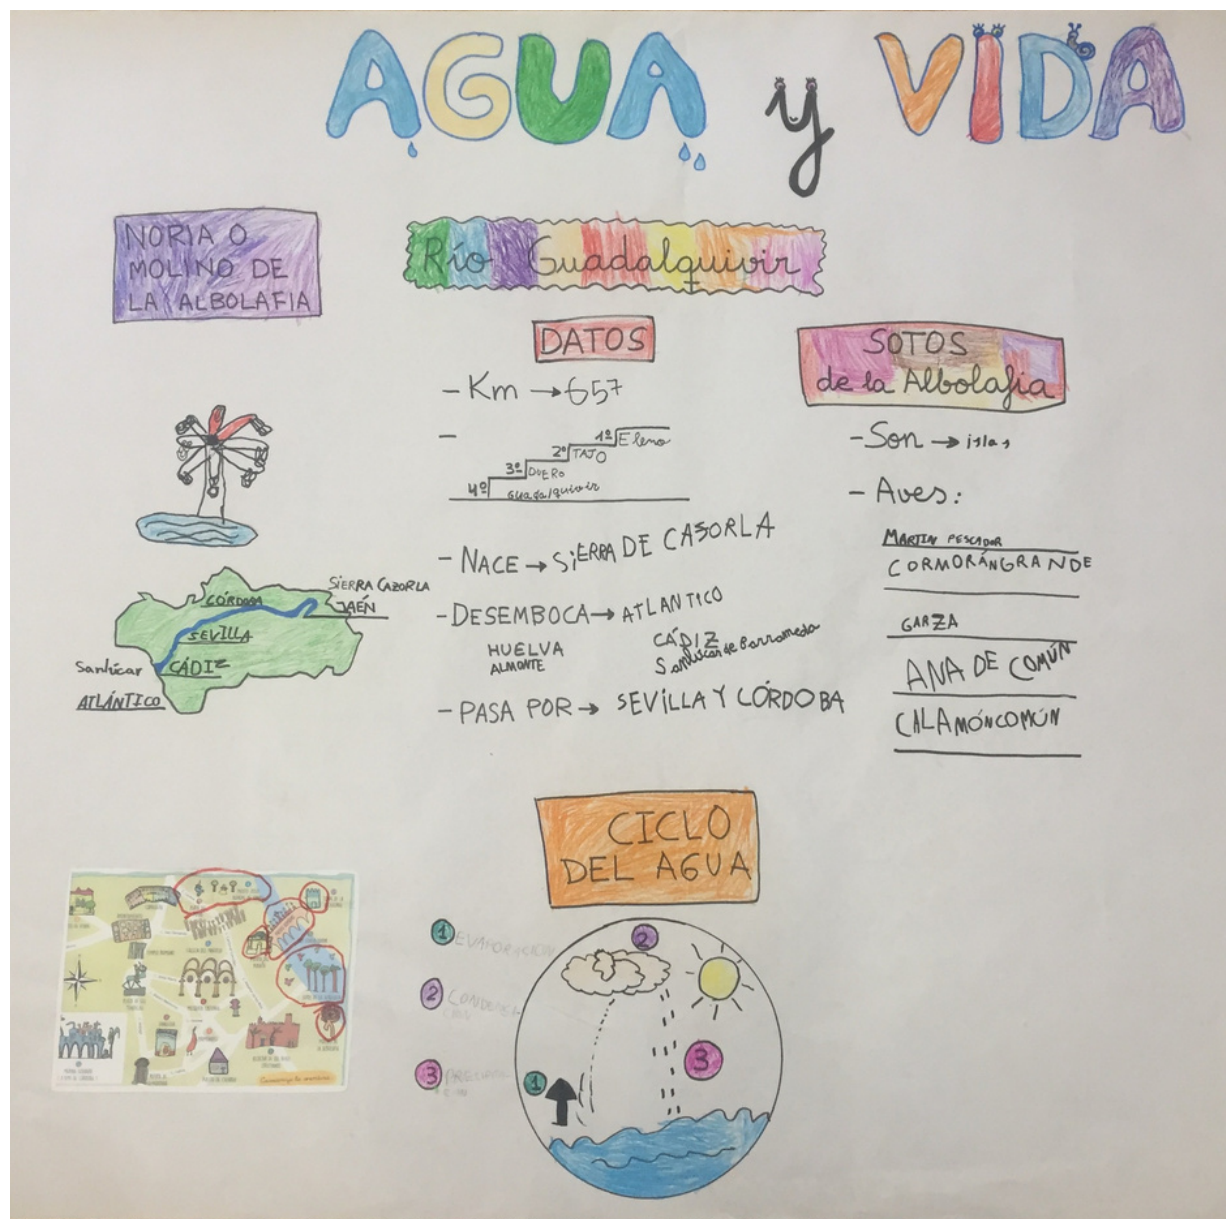 AGUA y VIDA
NORIA O
MOLINO DE
LA ALBOLAFIA
Río Guadalquivir
DATOS
- Km → 657
-
1º Eleno
2º TAJO
3º DUERO
4º Guadalquivir
- NACE → SiERRA DE CASORLA
- DESEMBOCA → ATLANTICO
HUELVA
ALMONTE
CÁDIZ
Sanlúcar de Barrameda
- PASA POR → SEVILLA Y CÓRDOBA
SOTOS
de la Albolafia
- Son → islas
- Aves:
MARTIN PESCADOR
CORMORÁN GRANDE
GARZA
ANA DE COMÚN
CALAMÓN COMÚN
SiERRA CAZORLA
JAÉN
CÓRDOBA
SEVILLA
CÁDIZ
Sanlúcar
ATLÁNTICO
CICLO
DEL AGUA
1 EVAPORACIÓN
2 CONDENSA
CIÓN
3
2
3
1